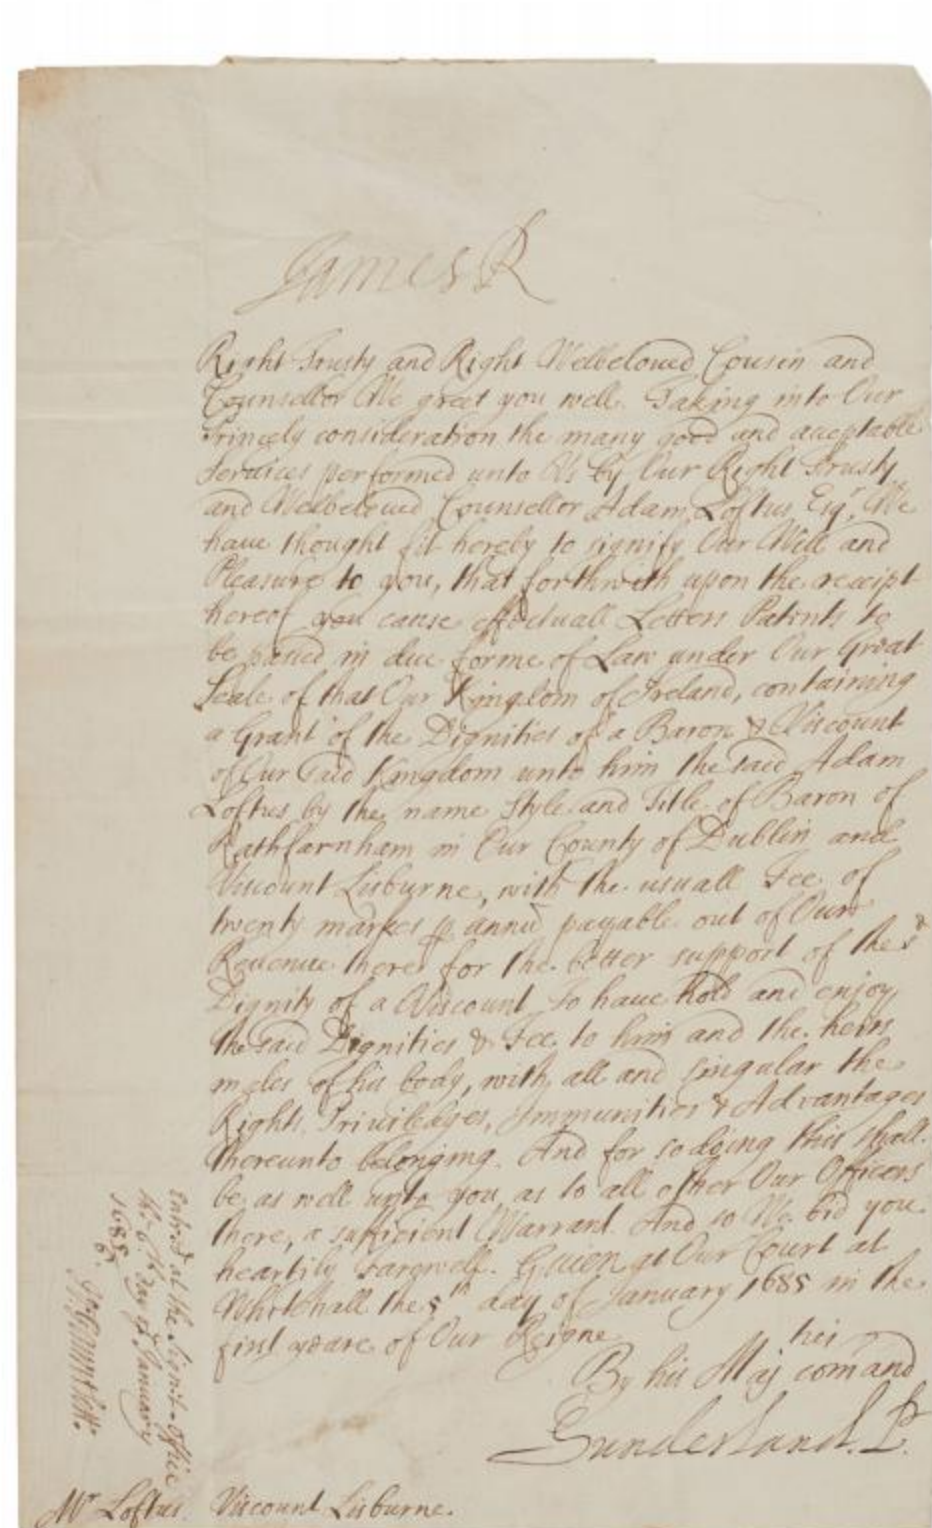 James R
Right Trusty and Right Welbeloved Cousin and
Counsellor We greet you well. Taking into Our
Princely consideration the many good and acceptable
Services performed unto Us by Our Right Trusty
and Welbeloved Counsellor Adam Loftus Esqr. We
have thought fit hereby to signify Our Will and
Pleasure to you, that forthwith upon the receipt
hereof you cause effectuall Letters Patents to
be passed in due forme of Law under Our Great
Seale of that Our Kingdom of Ireland, containing
a Grant of the Dignities of a Baron & Viscount
of Our said Kingdom unto him the said Adam
Loftus by the name Style and Title of Baron of
Rathfarnham in Our County of Dublin and
Viscount Lisburne, with the usuall Fee of
twenty markes p annū payable out of Our
Revenue there for the better support of the sd
Dignity of a Viscount To have hold and enjoy
the said Dignities & Fee to him and the heirs
males of his body, with all and singular the
Rights, Priviledges, Immunities & Advantages
thereunto belonging. And for so doing this shall
be as well unto you, as to all other Our Officers
there, a sufficient Warrant. And so We bid you
heartily Farewell. Given at Our Court at
Whitehall the 5th day of January 1685 in the
first yeare of Our Reigne
By his Majties comand
Sunderland. P.
Entred at the Signet-Office
the 6th day of January
1685/6.
Mr Loftus. Viscount Lisburne.